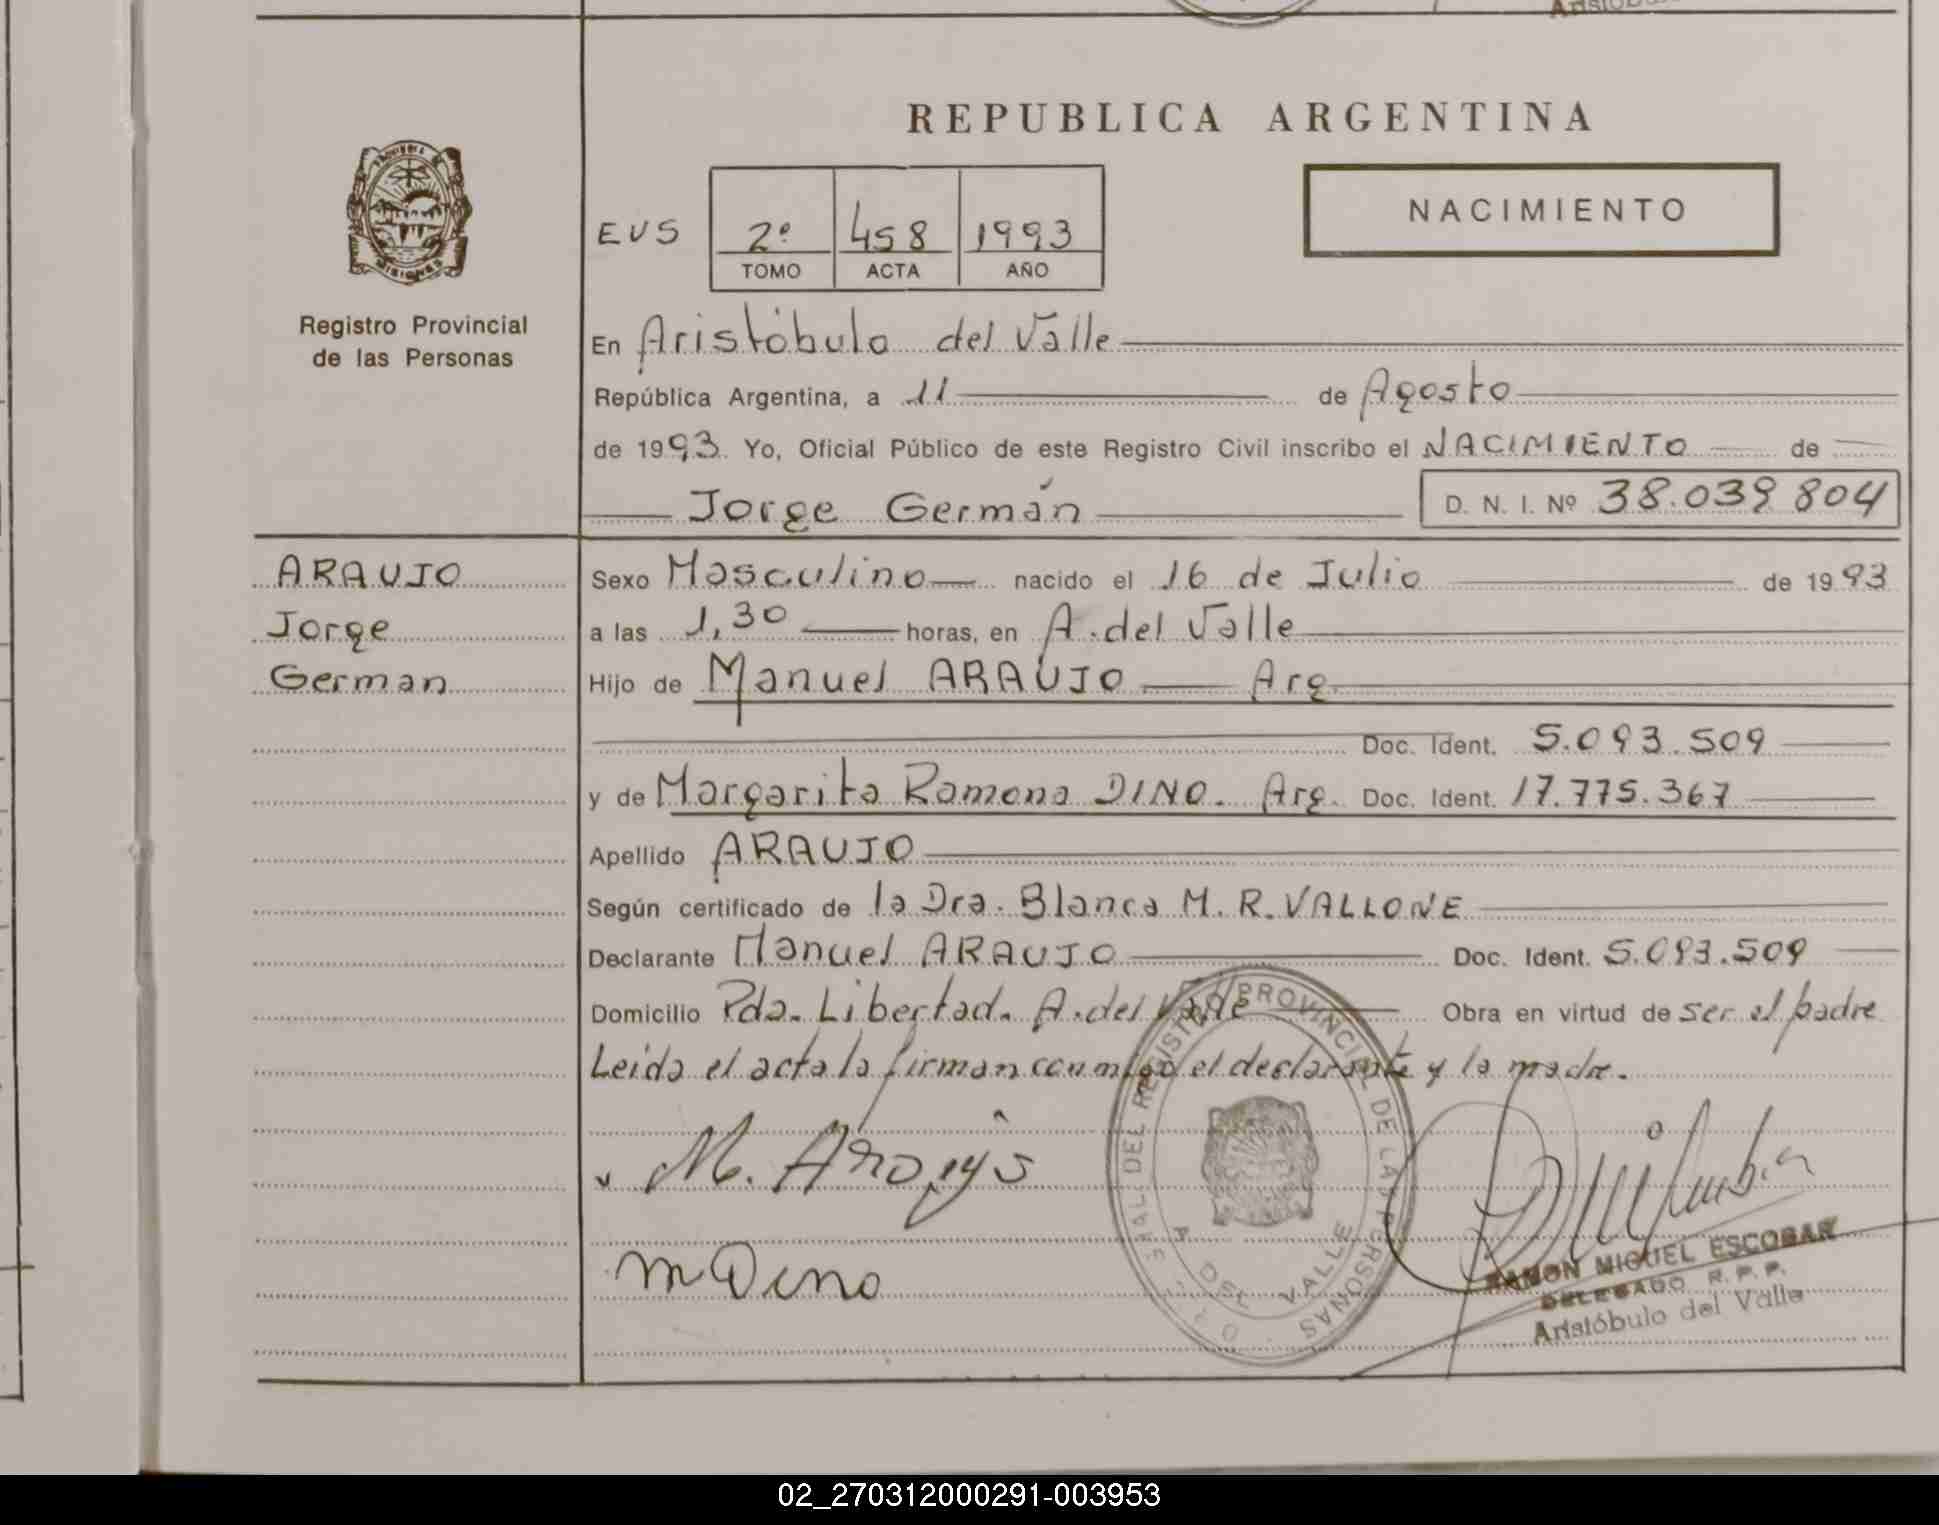 Aristóbulo
REPUBLICA ARGENTINA
NACIMIENTO
EVS
2º 458 1993
TOMO ACTA AÑO
PROVINCIA DE
MISIONES
Registro Provincial
de las Personas
En Aristóbulo del Valle
República Argentina, a 11 de Agosto
de 1993. Yo, Oficial Público de este Registro Civil inscribo el NACIMIENTO de
Jorge Germán D. N. I. Nº 38.039 804
ARAUJO
Jorge
German
Sexo Masculino nacido el 16 de Julio de 1993
a las 1,30 horas, en A. del Valle
Hijo de Manuel ARAUJO Arg.
Doc. Ident. 5.093.509
y de Margarita Ramona DINO. Arg. Doc. Ident. 17.775.367
Apellido ARAUJO
Según certificado de la Dra. Blanca M. R. VALLONE
Declarante Manuel ARAUJO Doc. Ident. 5.093.509
Domicilio Pda. Libertad. A. del Valle Obra en virtud de ser el padre
Leida el acta la firman conmigo el declarante y la madre.
M.
M Dino
DEL REGISTRO PROVINCIAL DE LAS PERSONAS
A. DEL VALLE
RAMON MIGUEL ESCOBAR
DELEGADO R. P. P.
Aristóbulo del Valle
02_270312000291-003953